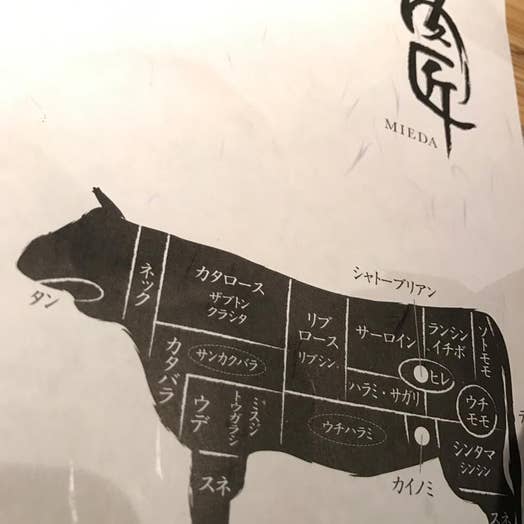 匠
MIEDA
シャトーブリアン
タン
ネック
カタロース
ザブトン
クラシタ
リブ
ロース
リブシン
サーロイン
ランシン
・イチボ
ソトモモ
カタバラ
サンカクバラ
ハラミ・サガリ
ヒレ
ウチ
モモ
ウデ
ミスジ
トウガラシ
ウチハラミ
シンタマ
シンシン
カイノミ
スネ
スネ